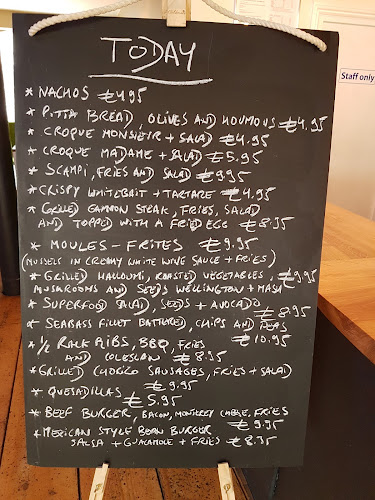 TODAY
Staff only
* NACHOS €4.95
* PITTA BREAD, OLIVES AND HOUMOUS €4.95
* CROQUE MONSIEIR + SALAD €4.95
* CROQUE MADAME + SALAD €5.95
* SCAMPI, FRIES AND SALAD €9.95
* CRISPY WHITEBAIT + TARTARE €4.95
* GRILLED GAMMON STEAK, FRIES, SALAD
AND TOPPED WITH A FRIED EGG €8.95
* MOULES-FRITES €9.95
(MUSSELS IN CREAMY WHITE WINE SAUCE + FRIES)
* GRILLED HALLOUMI, ROASTED VEGETABLES, €9.95
MUSHROOMS AND SEEDS WELLINGTON + MASH
* SUPERFOOD SALAD, SEEDS + AVOCADO
€8.95
* SEABASS FILLET BATTERED, CHIPS AND PEAS
€10.95
* 1/2 RACK RIBS, BBQ, FRIES
AND COLESLAW €8.95
* GRILLED CHORIZO SAUSAGES, FRIES + SALAD
€9.95
* QUESADILLAS €5.95
* BEEF BURGER, BACON, MONTEREY CHEESE, FRIES
€9.95
* MEXICAN STYLE BEAN BURGER
SALSA + GUACAMOLE + FRIES €8.95